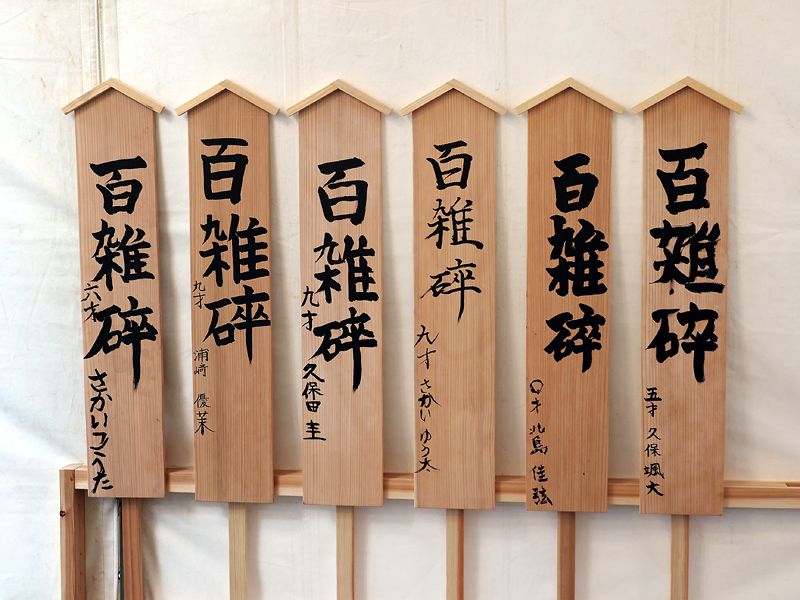 百雑砕
六才
さかいこうた
百雑砕
九才
浦﨑 優茉
百雑砕
九才
久保田 圭
百雑砕
九才 さかい ゆう太
百雑砕
才 北島 佳弦
百雑砕
五才 久保 颯大